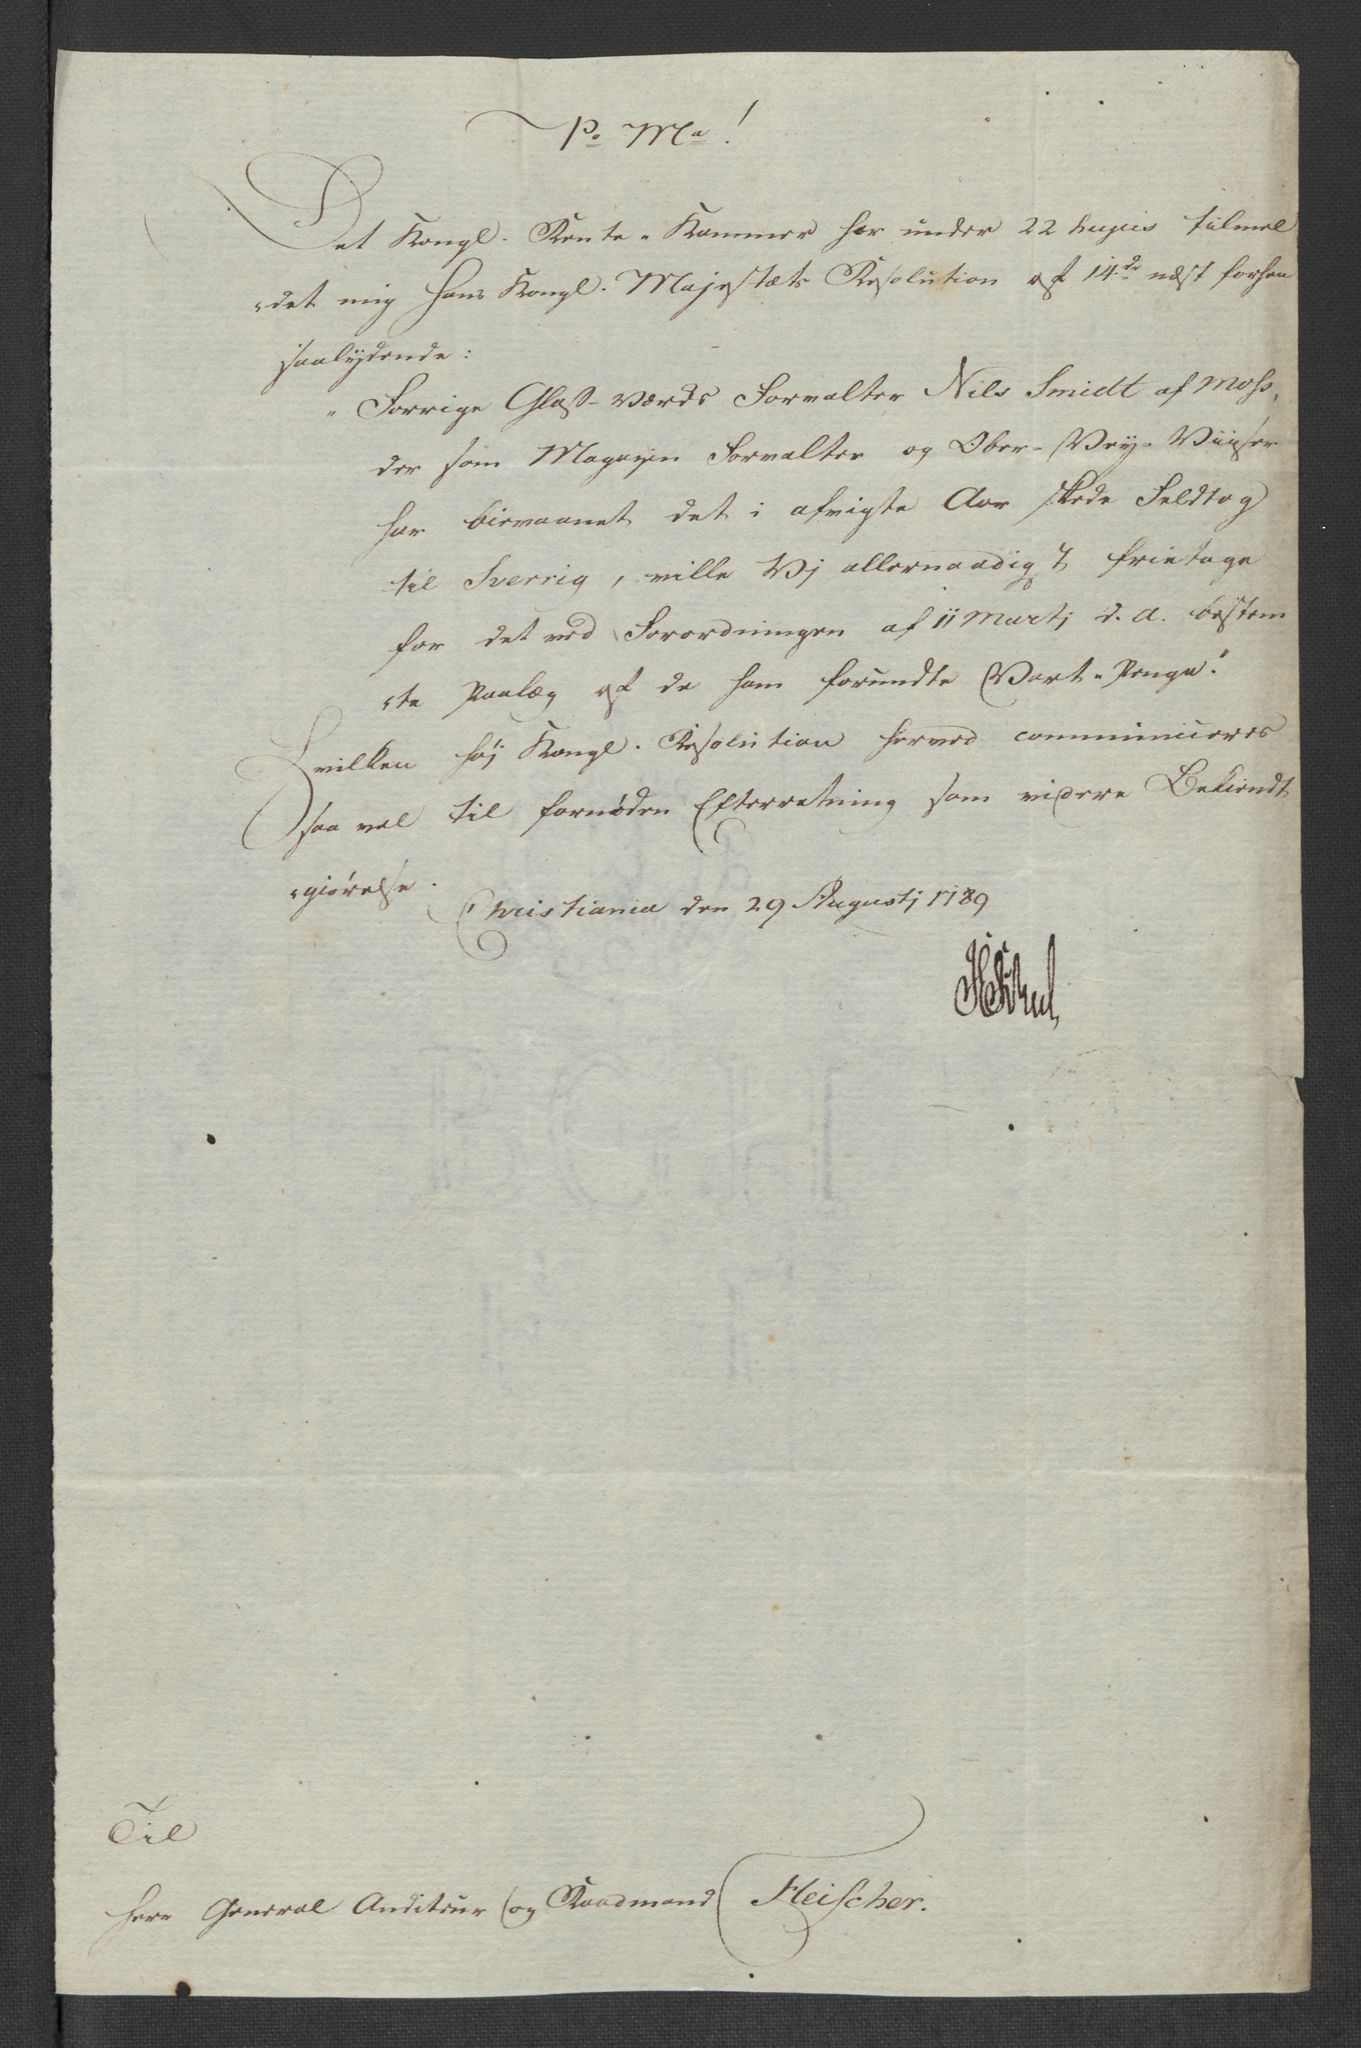 P: Ma!
Det Kongl. Rente-Kammer har under 22 hujus tilmel
-det mig Hans Kongl. Majestæts Resolution af 14de næst forhen
saalydende:
"Forrige Glass-Værks Forvalter Nils Smidt af Moss,
der som Magazin Forvalter og Ober-Vey-Viiser
har bievaanet det i afvigte Aar skede Feldtog
til Sverrig, ville Vj allernaadigst frietage
for det ved Forordningen af 11 Martj d. A. bestem
-te Paalæg af de ham forundte Vart-Penge."
Hvilken høj Kongl. Resolution herved communiceres
saa vel til fornøden Efterretning som videre Bekiendt
-giørelse.
Christiania den 29 Augustj 1789
Til
Herr General Auditeur og Raadmand Fleischer.